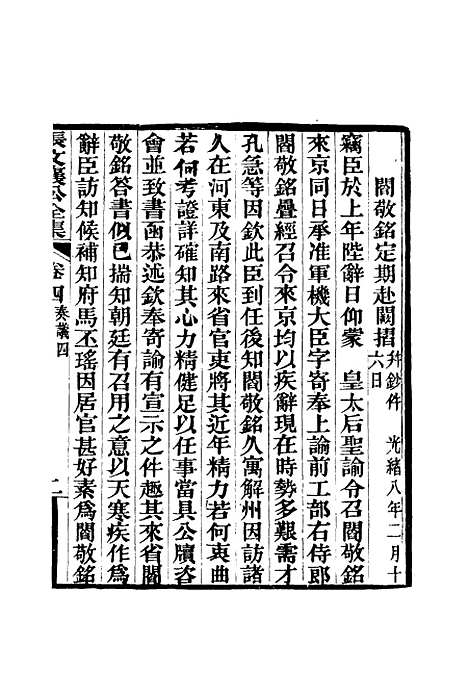 閻敬銘定期赴闕摺幷鈔件　光緒八年二月十六日
竊臣於上年陛辭日仰蒙　皇太后聖諭令召閻敬銘
來京同日承准軍機大臣字寄奉上諭前工部右侍郎
閻敬銘疊經召令來京均以疾辭現在時勢多艱需才
孔急等因欽此臣到任後知閻敬銘久寓解州因訪諸
人在河東及南路來省官吏將其近年精力若何衷曲
若何考證詳確知其心力精健足以任事當具公牘咨
會並致書函恭述欽奉寄諭有宣示之件趣其來省閻
敬銘答書似已揣知朝廷有召用之意以天寒疾作爲
辭臣訪知候補知府馬丕瑤因居官甚好素爲閻敬銘
張文襄公全集　卷四　奏議四